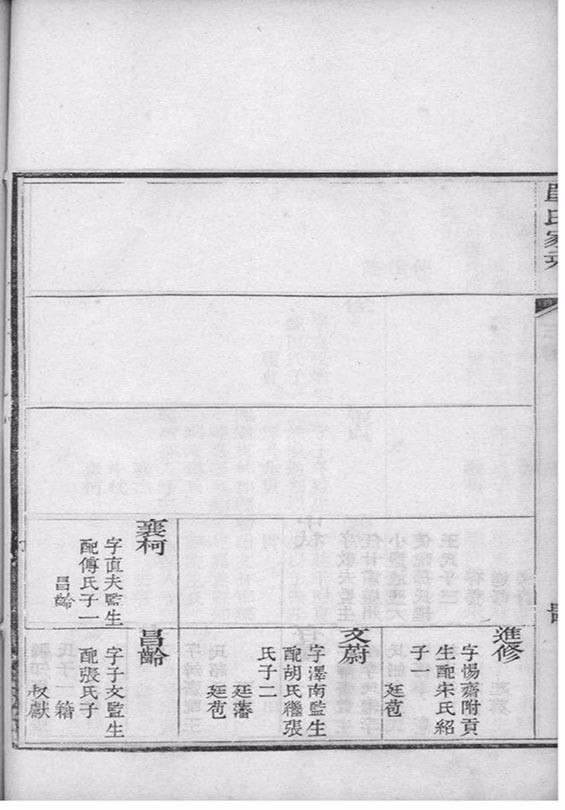 襄柯
字直夫監生
配傅氏子一
昌齡
進修
字惕齋附貢
生配宋氏紹
子一
廷苞
文蔚
字澤南監生
配胡氏繼張
氏子二
廷藩
廷苞
昌齡
字子文監生
配張氏子
籍
叔獻